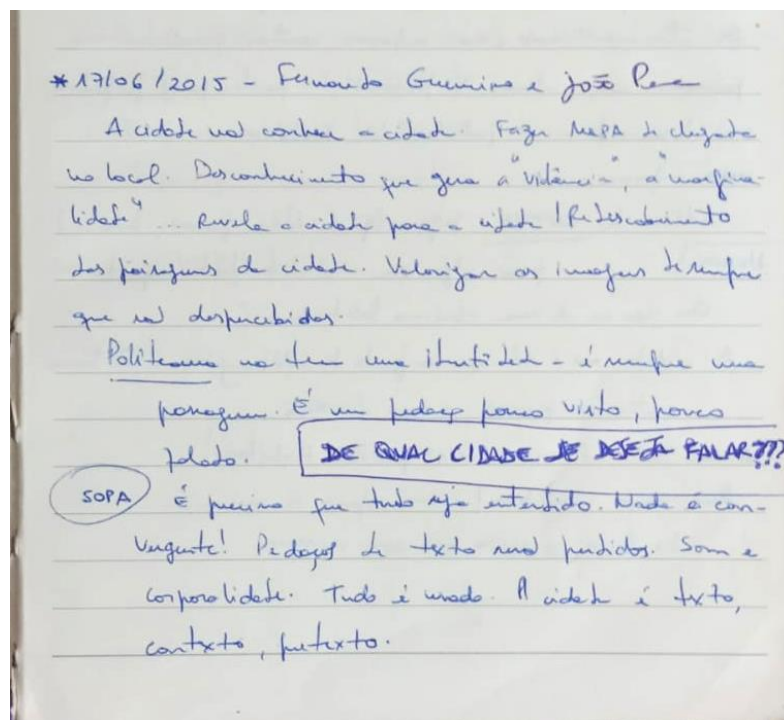 * 17/06/2015 - Fernando Guerreiro e João
A cidade não conhece a cidade. Fazer MAPA de chegada
no local. Desconhecimento que gera a "violência", a "margina-
lidade"... Revela a cidade para a cidade! Redescobrimento
das paisagens da cidade. Valorizar as imagens de sempre
que são despercebidas.
Politeama não tem uma identidade - é sempre uma
passagem. É um pedaço pouco visto, pouco
falado. DE QUAL CIDADE SE DESEJA FALAR???
SOPA É preciso que tudo seja entendido. Nada é con-
vergente! Pedaços de texto serão perdidos. Som e
corporalidade. Tudo é usado. A cidade é texto,
contexto, pretexto.